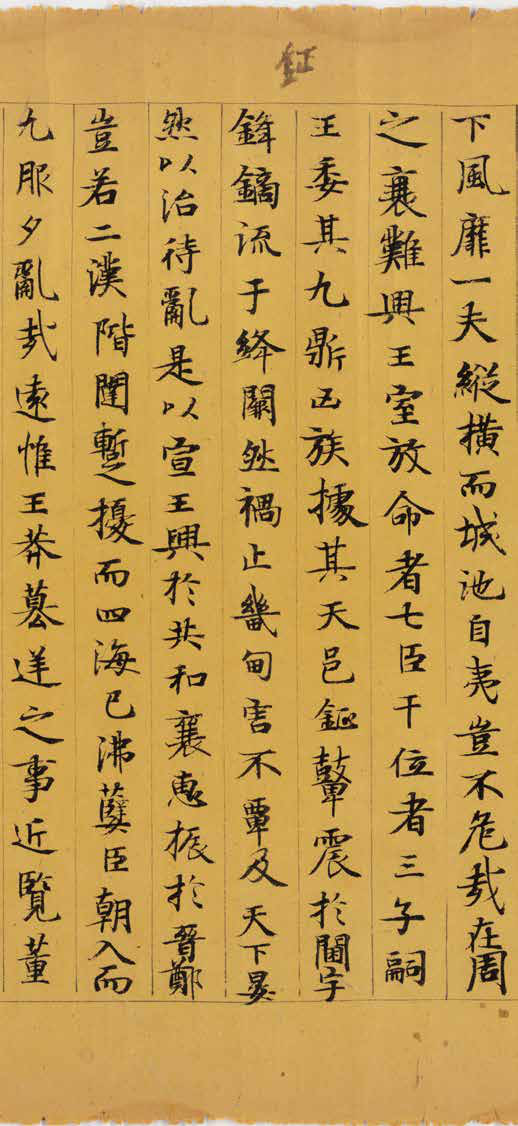 鉦
下風靡一夫縱橫而城池自夷豈不危哉在周
之襄難興王室放命者七臣干位者三子嗣
王委其九鼎凶族據其天邑鉦鼙震於閫宇
鋒鏑流于絳闕然禍止畿甸害不覃及天下晏
然以治待亂是以宣王興於共和襄惠振於晉鄭
豈若二漢階闥蹔擾而四海已沸孽臣朝入而
九服夕亂哉遠惟王莽篡逆之事近覽董